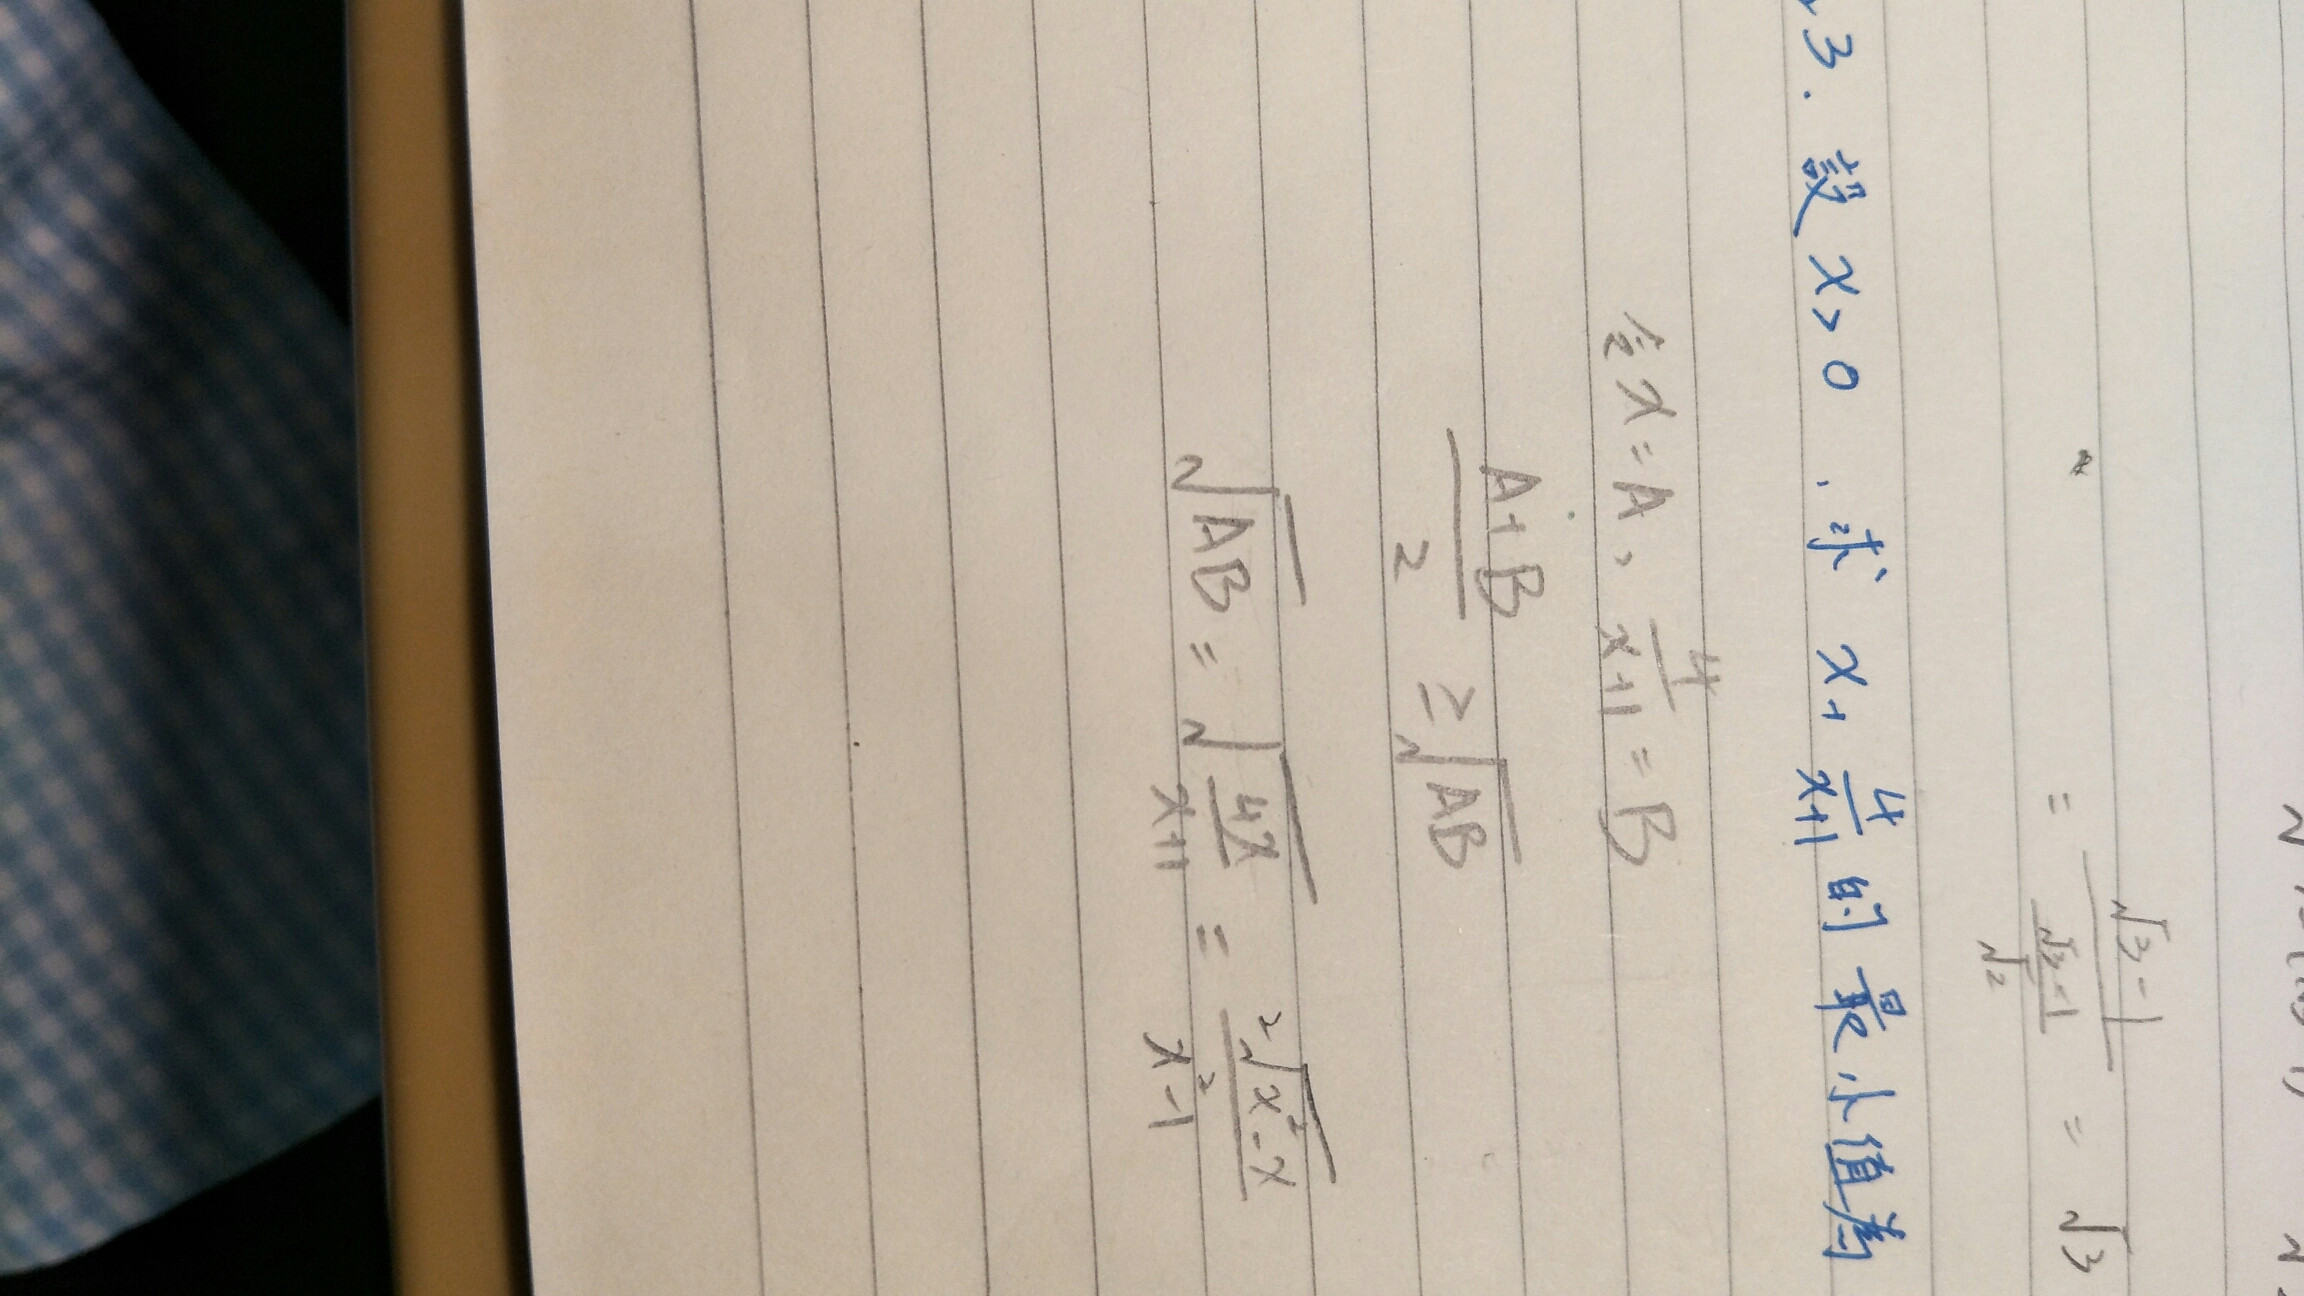 = (√3-1)/((√3-1)/√2) = √3
3. 設 x>0 , 求 x+4/(x+1) 的最小值為
令 x=A, 4/(x+1)=B
(A+B)/2 ≥ √AB
√AB = √(4x/(x+1)) = 2√(x²-x)/(x²-1)